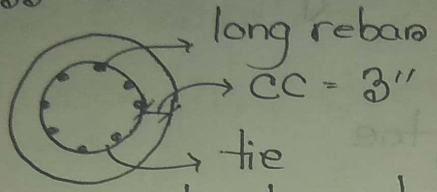 long rebar
CC = 3"
tie